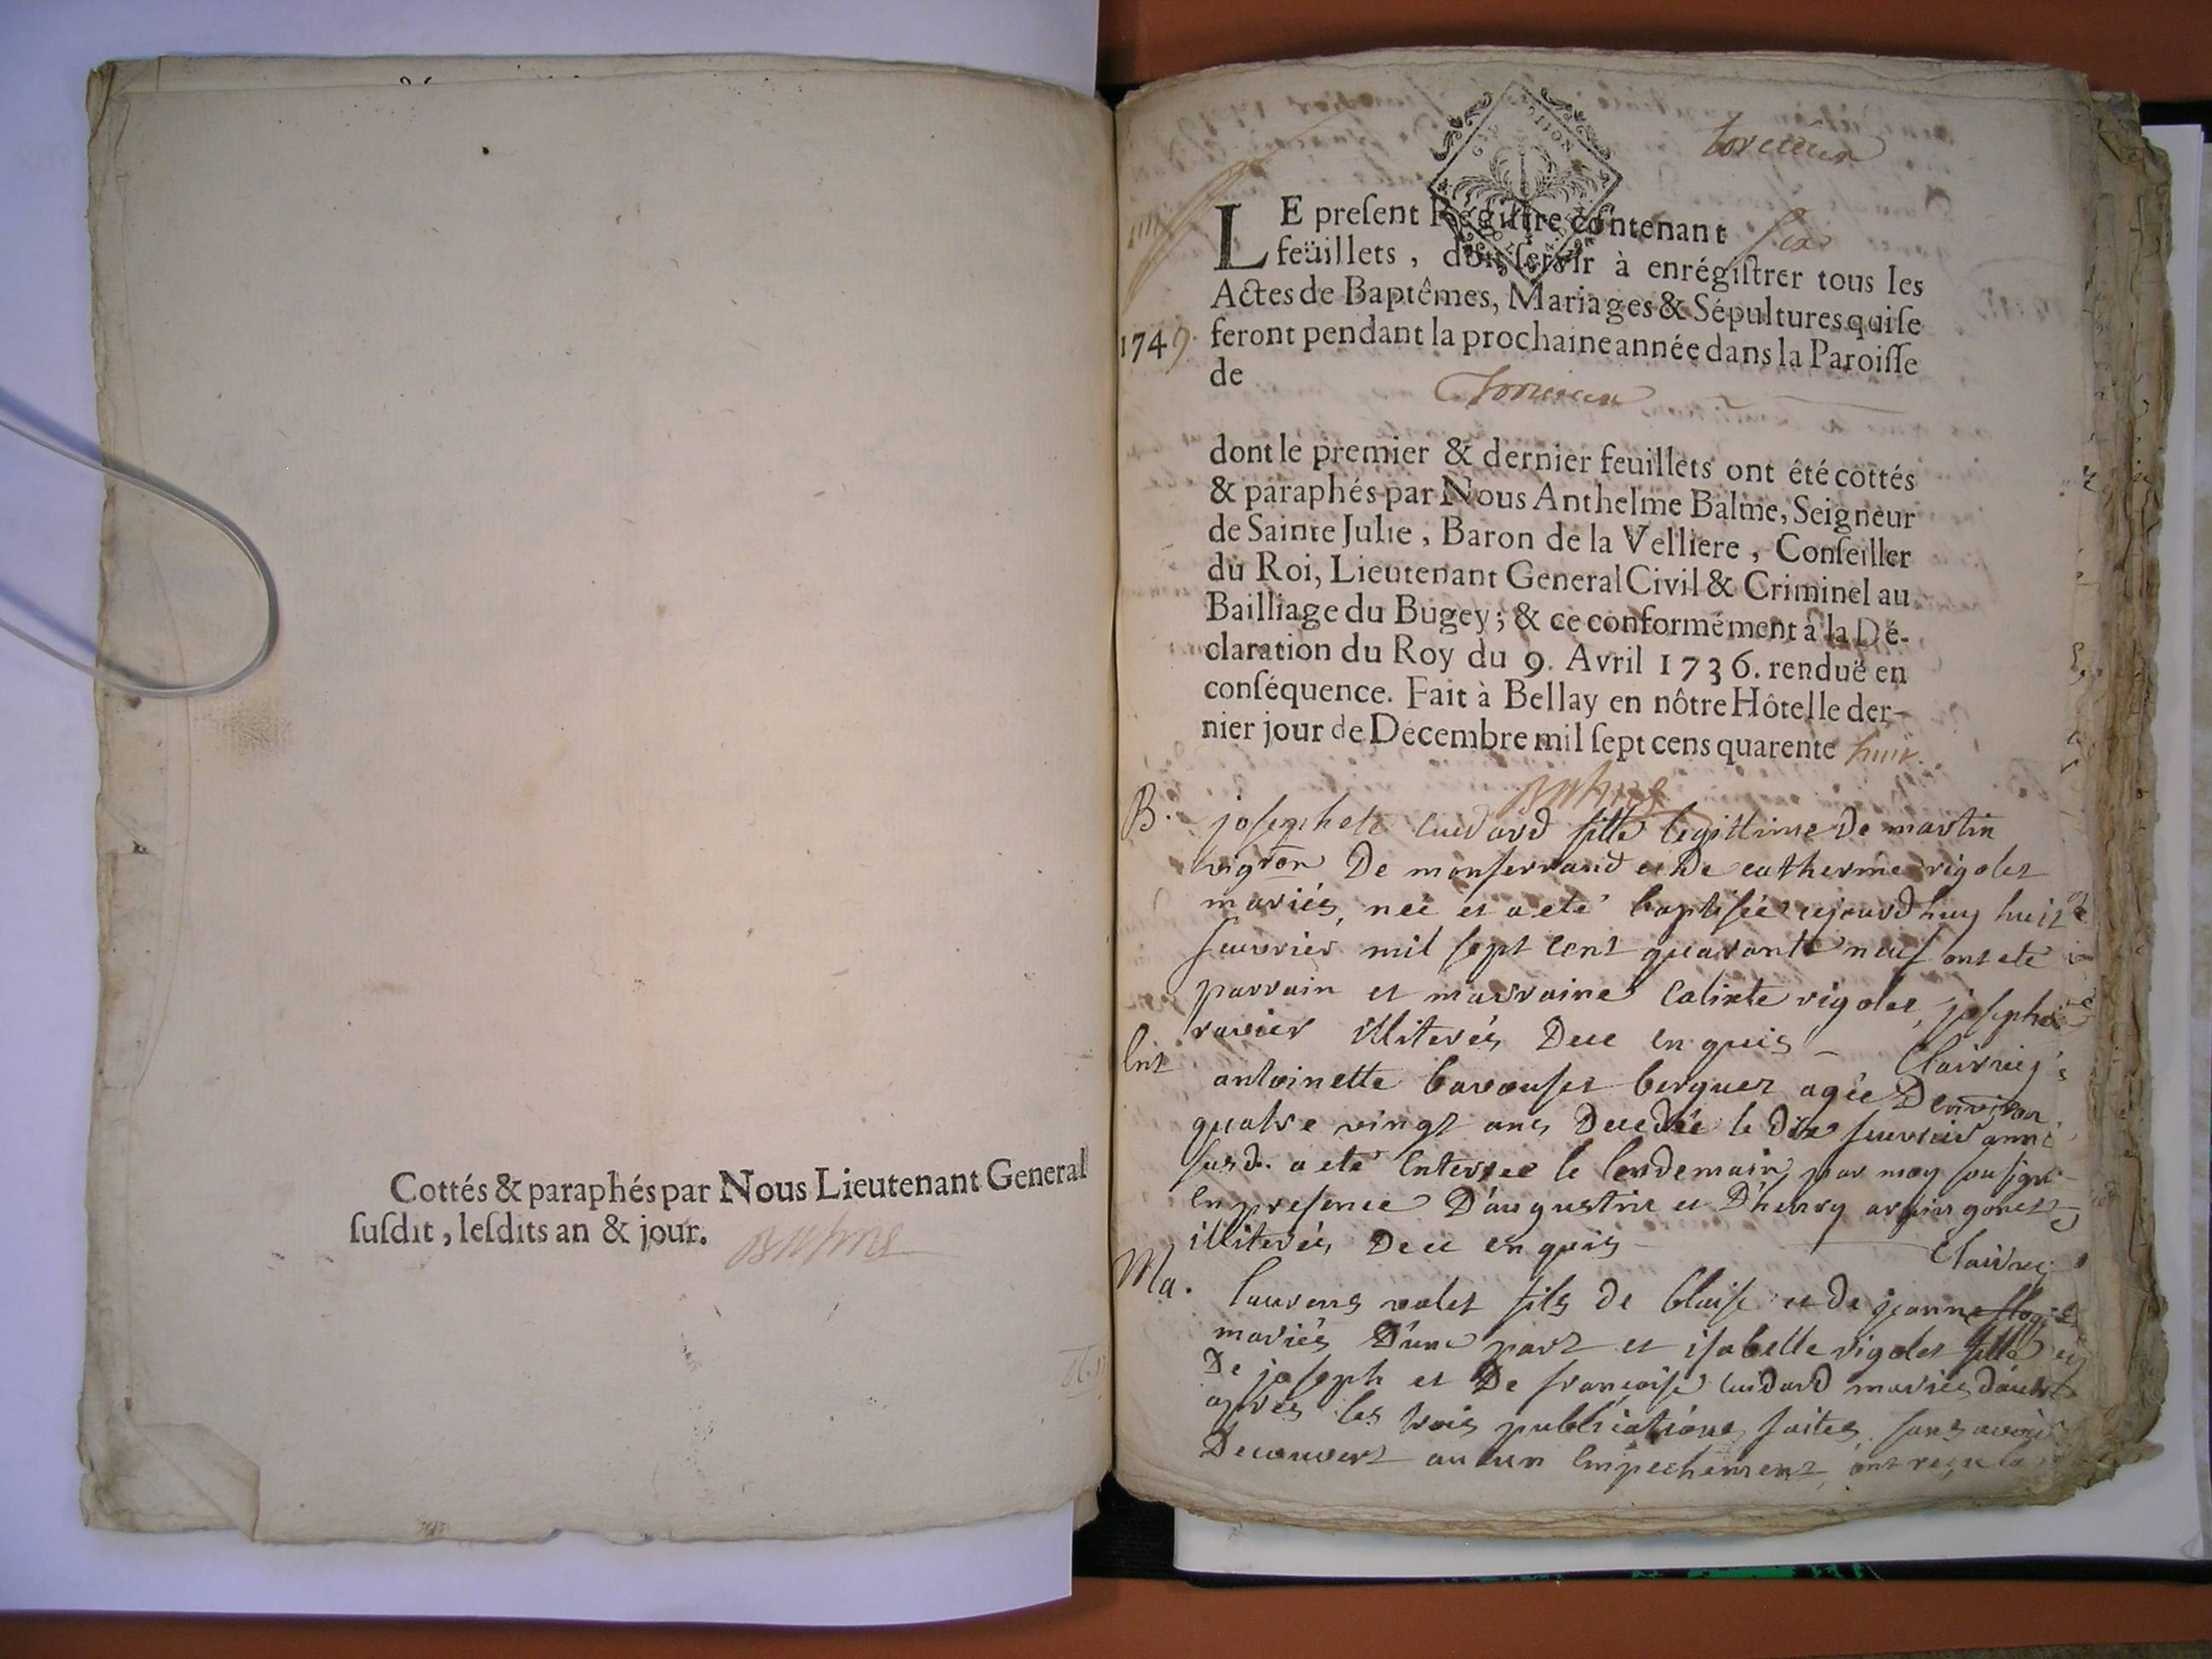 Cottés & paraphés par Nous Lieutenant General
ſuſdit, leſdits an & jour.
LE preſent Régiſtre contenant ſix
feüillets, doit ſervir à enrégiſtrer tous les
Actes de Baptêmes, Mariages & Sépultures qui ſe
1749. feront pendant la prochaine année dans la Paroiſſe
de
dont le premier & dernier feuillets ont été cottés
& paraphés par Nous Anthelme Balme, Seigneur
de Sainte Julie, Baron de la Velliere, Conſeiller
du Roi, Lieutenant General Civil & Criminel au
Bailliage du Bugey; & ce conformément à la Dé-
claration du Roy du 9. Avril 1736. renduë en
conſéquence. Fait à Bellay en nôtre Hôtel le der-
nier jour de Décembre mil ſept cens quarente huit.
B. joſephete cuidard fille legittime De martin
vigron De monferrand et De catherine vigolet
mariés, neé et a eté baptiſée cejourdhuy huit
feuvrier mil ſept cent quarante neuf ont eté
parrain et marraine Calixte vigolet, joſephe
ravier illiterés De ce enquis
Ent antoinette agée Denviron
quatre vingt ans Decedée le Dix feuvrier anné
ſusd. a eté Enterrée le lendemain par moy ſouſigné
En preſence D'auguſtin et D'henry
illiterés De ce enquis
Ma. laurens volet fils de blaiſe et de jeanne
mariés D'une part et iſabelle vigolet fille
De joſeph et De françoiſe cuidard mariés dautre
apres les trois publications faites ſans avoir
Decouvert aucun Empechement, ont reçu la